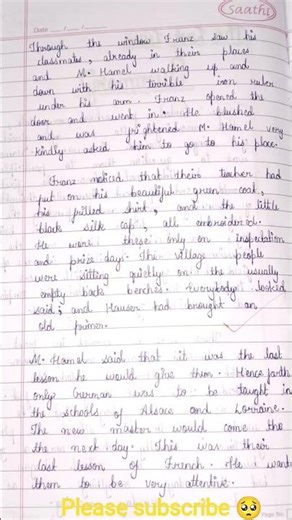 Saathi
Date
Through the window Franz saw his
classmates, already in their places
and M. Hamel walking up and
down with his terrible iron ruler
under his arm. Franz opened the
door and went in. He blushed
and was frightened. M. Hamel very
kindly asked him to go to his place.
Franz noticed that their teacher had
put on his beautiful green coat,
his frilled shirt, and the little
black silk cap, all embroidered.
He wore these only on inspectation
and prize days. The village people
were sitting quietly on the usually
empty back benches. Everybody looked
said; and Hauser had brought an
old primer.
M. Hamel said that it was the last
lesson he would give them. Henceforth
only German was to be taught in
the schools of Alsace and Lorraine.
The new master would come the
the next day. This was their
last lesson of French. He want
them to be very attentive.
Please subscribe 🥺